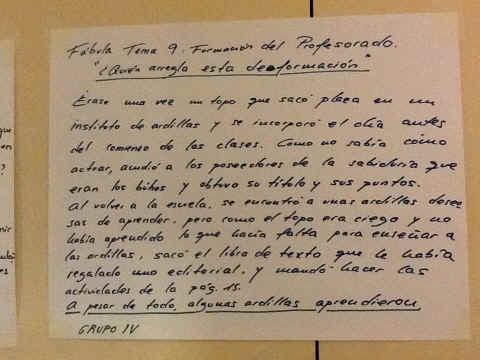 Fábula Tema 9. Formación del Profesorado.
"¿Quién arregla esta deformación"
Érase una vez un topo que sacó plaza en un
instituto de ardillas y se incorporó el día antes
del comienzo de las clases. Como no sabía cómo
actuar, acudió a los poseedores de la sabiduría que
eran los búhos y obtuvo su título y sus puntos.
Al volver a la escuela, se encontró a unas ardillas deseo
sas de aprender, pero como el topo era ciego y no
había aprendido lo que hacía falta para enseñar a
las ardillas, sacó el libro de texto que le había
regalado una editorial, y mandó hacer las
actividades de la pág. 15.
A pesar de todo, algunas ardillas aprendieron
GRUPO IV